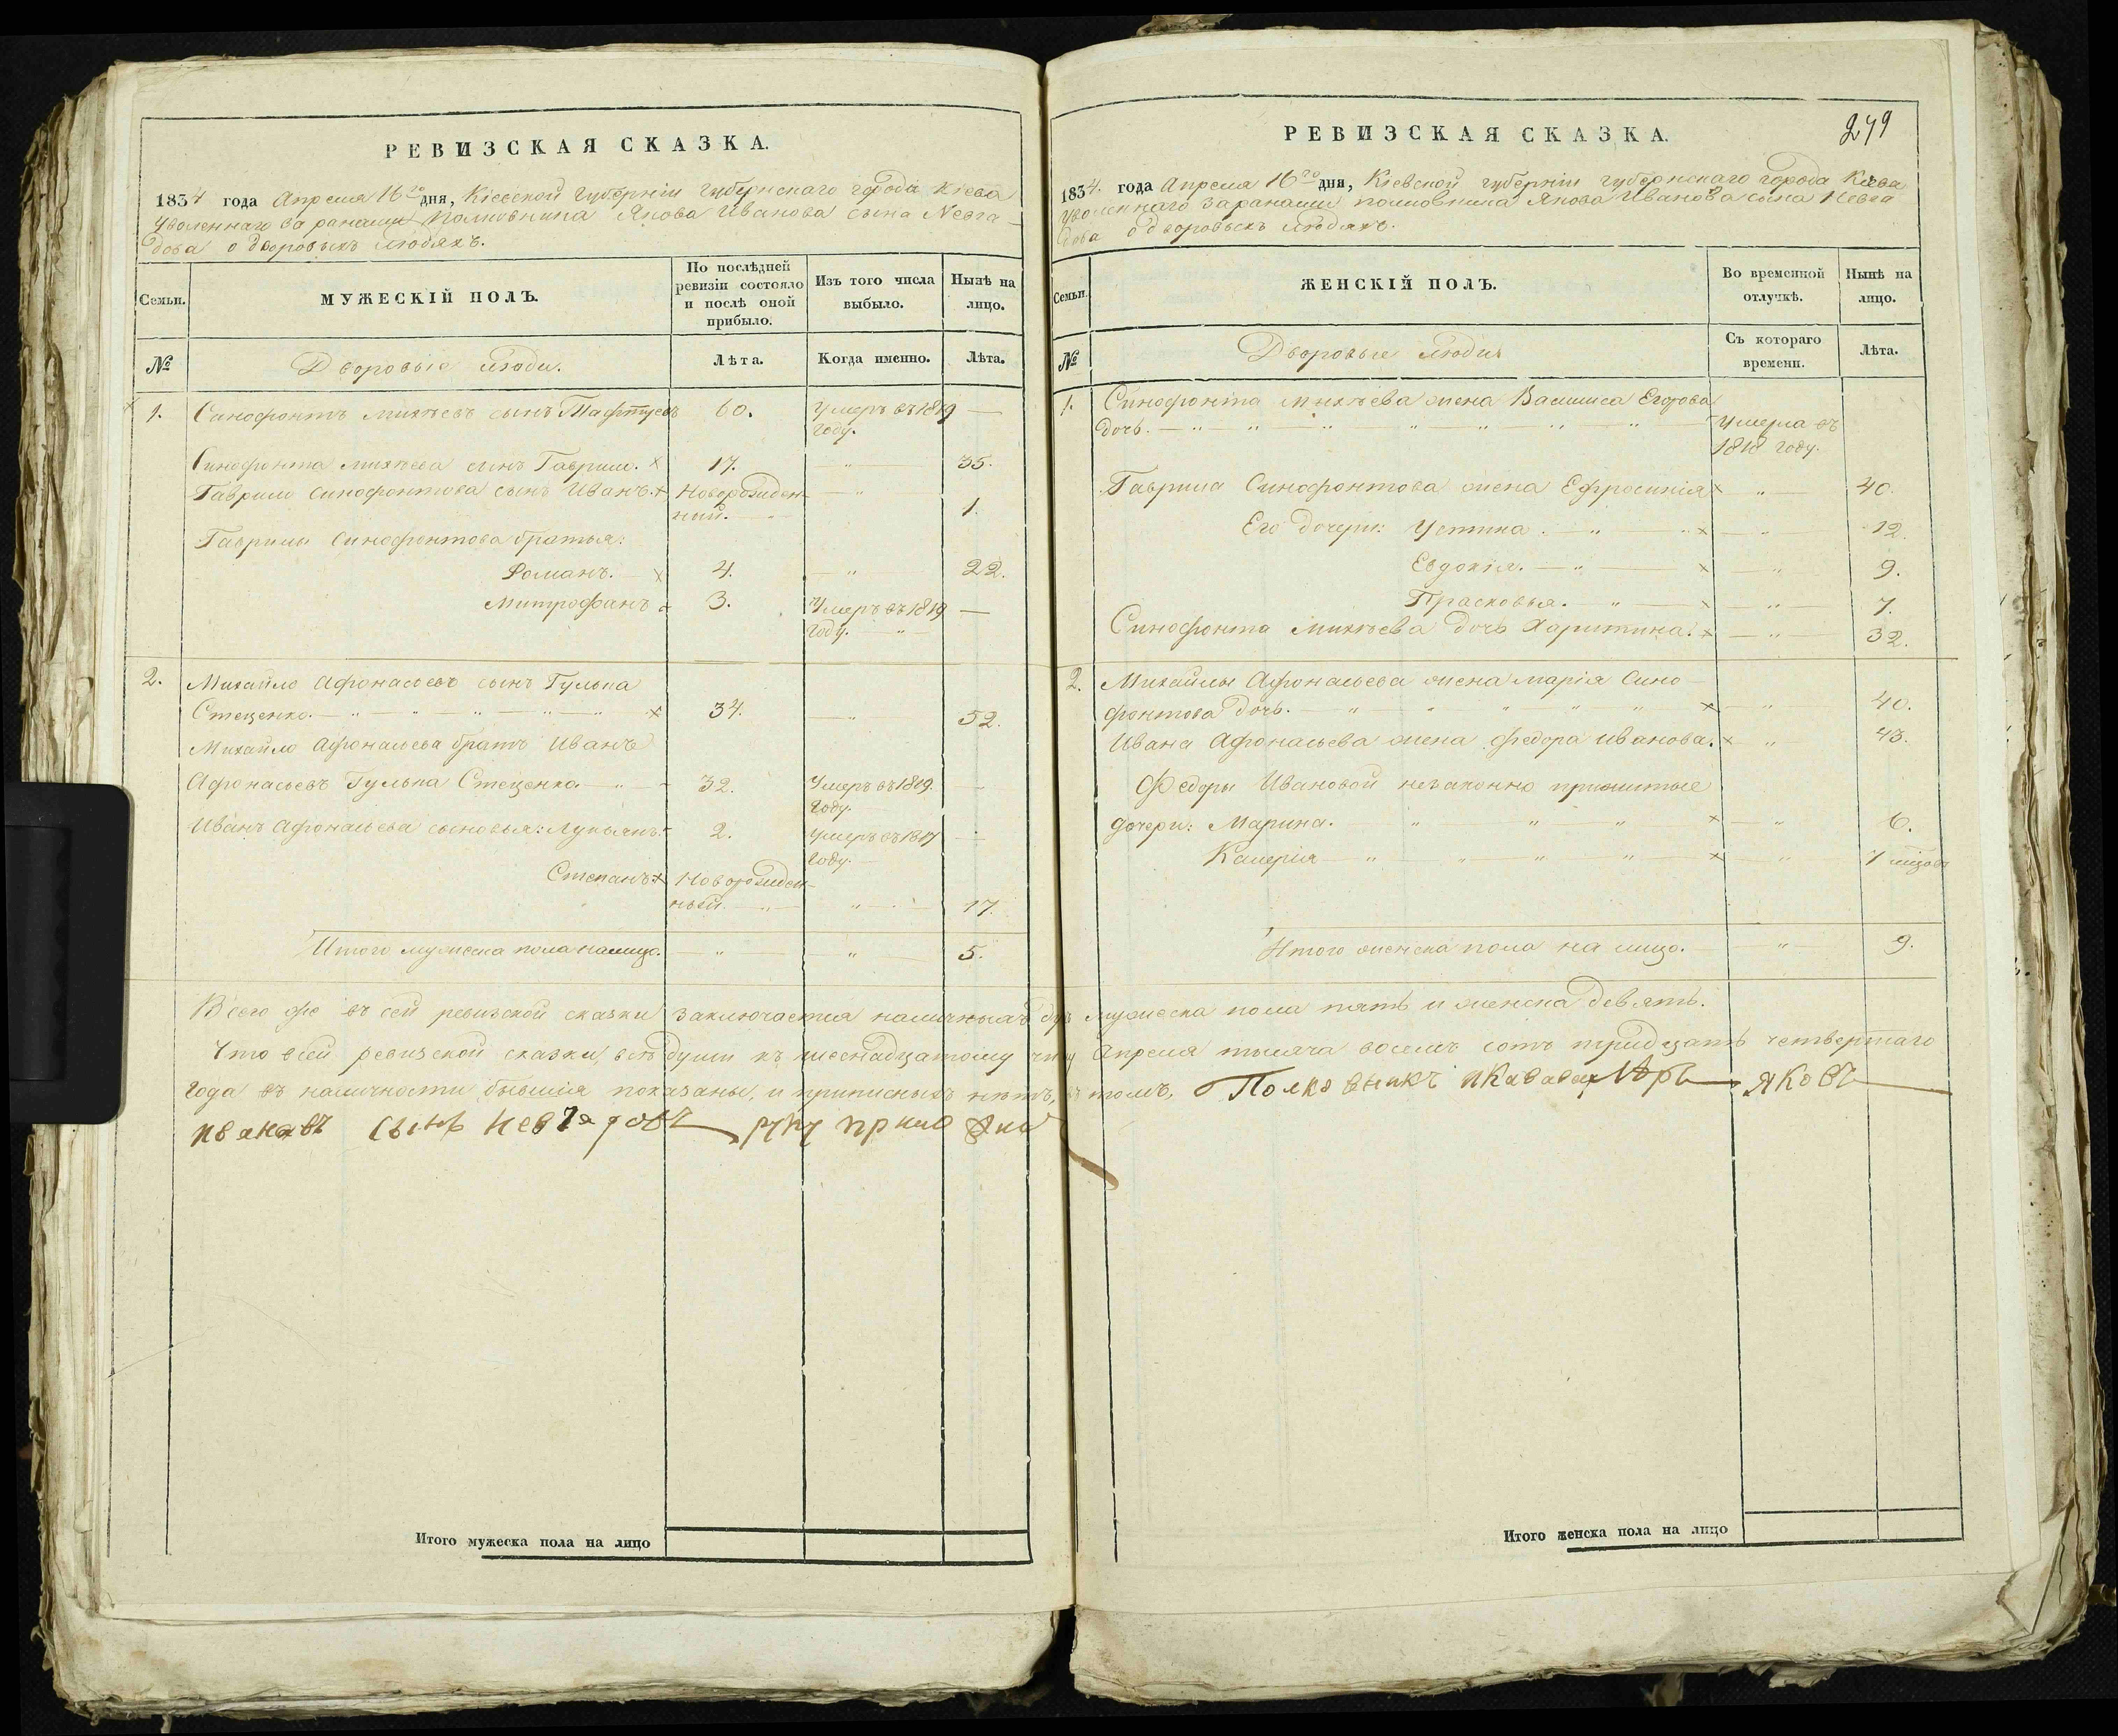 РЕВИЗСКАЯ СКАЗКА.
1834 года Апреля 16го дня, Кіевской губерніи губернскаго города Кіева
уволеннаго за ранами Полковника Якова Иванова сына Невга-
дова о дворовыхъ людяхъ.
Семьи.
МУЖЕСКІЙ ПОЛЪ.
По послѣдней ревизіи состояло и послѣ оной прибыло.
Изъ того числа выбыло.
Нынѣ на лицо.
№
Дворовыіе люди.
Лѣта.
Когда именно.
Лѣта.
1. Синофонтъ Михѣевъ сынъ 60. Умеръ въ 1819 —
году.
Синофонта Михѣева сынъ Гаврило. х 17. — " — 35.
Гаврило Синофонтова сынъ Иванъ. х Новорожден- — "
ный. — 1.
Гаврилы Синофонтова братья:
Романъ. — х 4. — " — 22.
Митрофанъ 3. Умеръ въ 1819 —
году. — " —
2. Михайло Афонасьевъ сынъ Гулька
Стеценко. — " — " — " — " — " — х 34. — " — 52.
Михайло Афонасьева братъ Иванъ
Афонасьевъ Гулька Стеценко. — " — 32. Умеръ въ 1819. —
году.
Иванъ Афонасьева сыновья: Лукьянъ. 2. умеръ въ 1817 —
году. —
Степанъ х Новорожден-
ный. — " — " — 17.
Итого мужеска пола налицо. — " — " — 5.
РЕВИЗСКАЯ СКАЗКА.
279
1834. года Апреля 16го дня, Кіевской губерніи губернскаго города Кіева
уволеннаго за ранами полковника Якова Иванова сына Невга
дова о дворовыхъ людяхъ.
Семьи.
ЖЕНСКІЙ ПОЛЪ.
Во временной отлучкѣ.
Нынѣ на лицо.
№
Дворовые люди
Съ котораго времени.
Лѣта.
1. Синофонта Михѣева жена Василиса Егорова
дочь. — " — " — " — " — " — " — " — Умерла въ
1818 году.
Гаврила Синофонтова жена Ефросинія х — " — 40.
Его дочери: Устина. — " — х — " — 12.
Евдокія. — " — х — " — 9.
Прасковья. " — х — " — 7.
Синофонта Михѣева дочь Харитина. х — " — 32.
2. Михайлы Афонасьева жена Марія Сино-
фонтова дочь. — " — " — " — " — " — х — " — 40.
Ивана Афонасьева жена Федора Иванова. х — " — 43.
Федоры Ивановой незаконно прижитые
дочери: Марина. — " — " — " — х — " — 6.
Калерія — " — " — " — " — х — " — 7 мѣзовъ
Итого женска пола на лицо. — " — 9.
Всего же въ сей ревизской сказки заключается наличныхъ душ мужеска пола пять и женска девять.
Что въ сей ревизской сказки, всѣ души къ шеснадцатому числу Апреля тысяча восемь сотъ тридцать четвертаго
года въ наличности бывшія показаны, и прописныхъ нѣтъ, въ томъ, Полковникъ и Кавалеръ Яковъ
Ивановъ сынъ Невгадовъ руку приложилъ
Итого мужеска пола на лицо
Итого женска пола на лицо